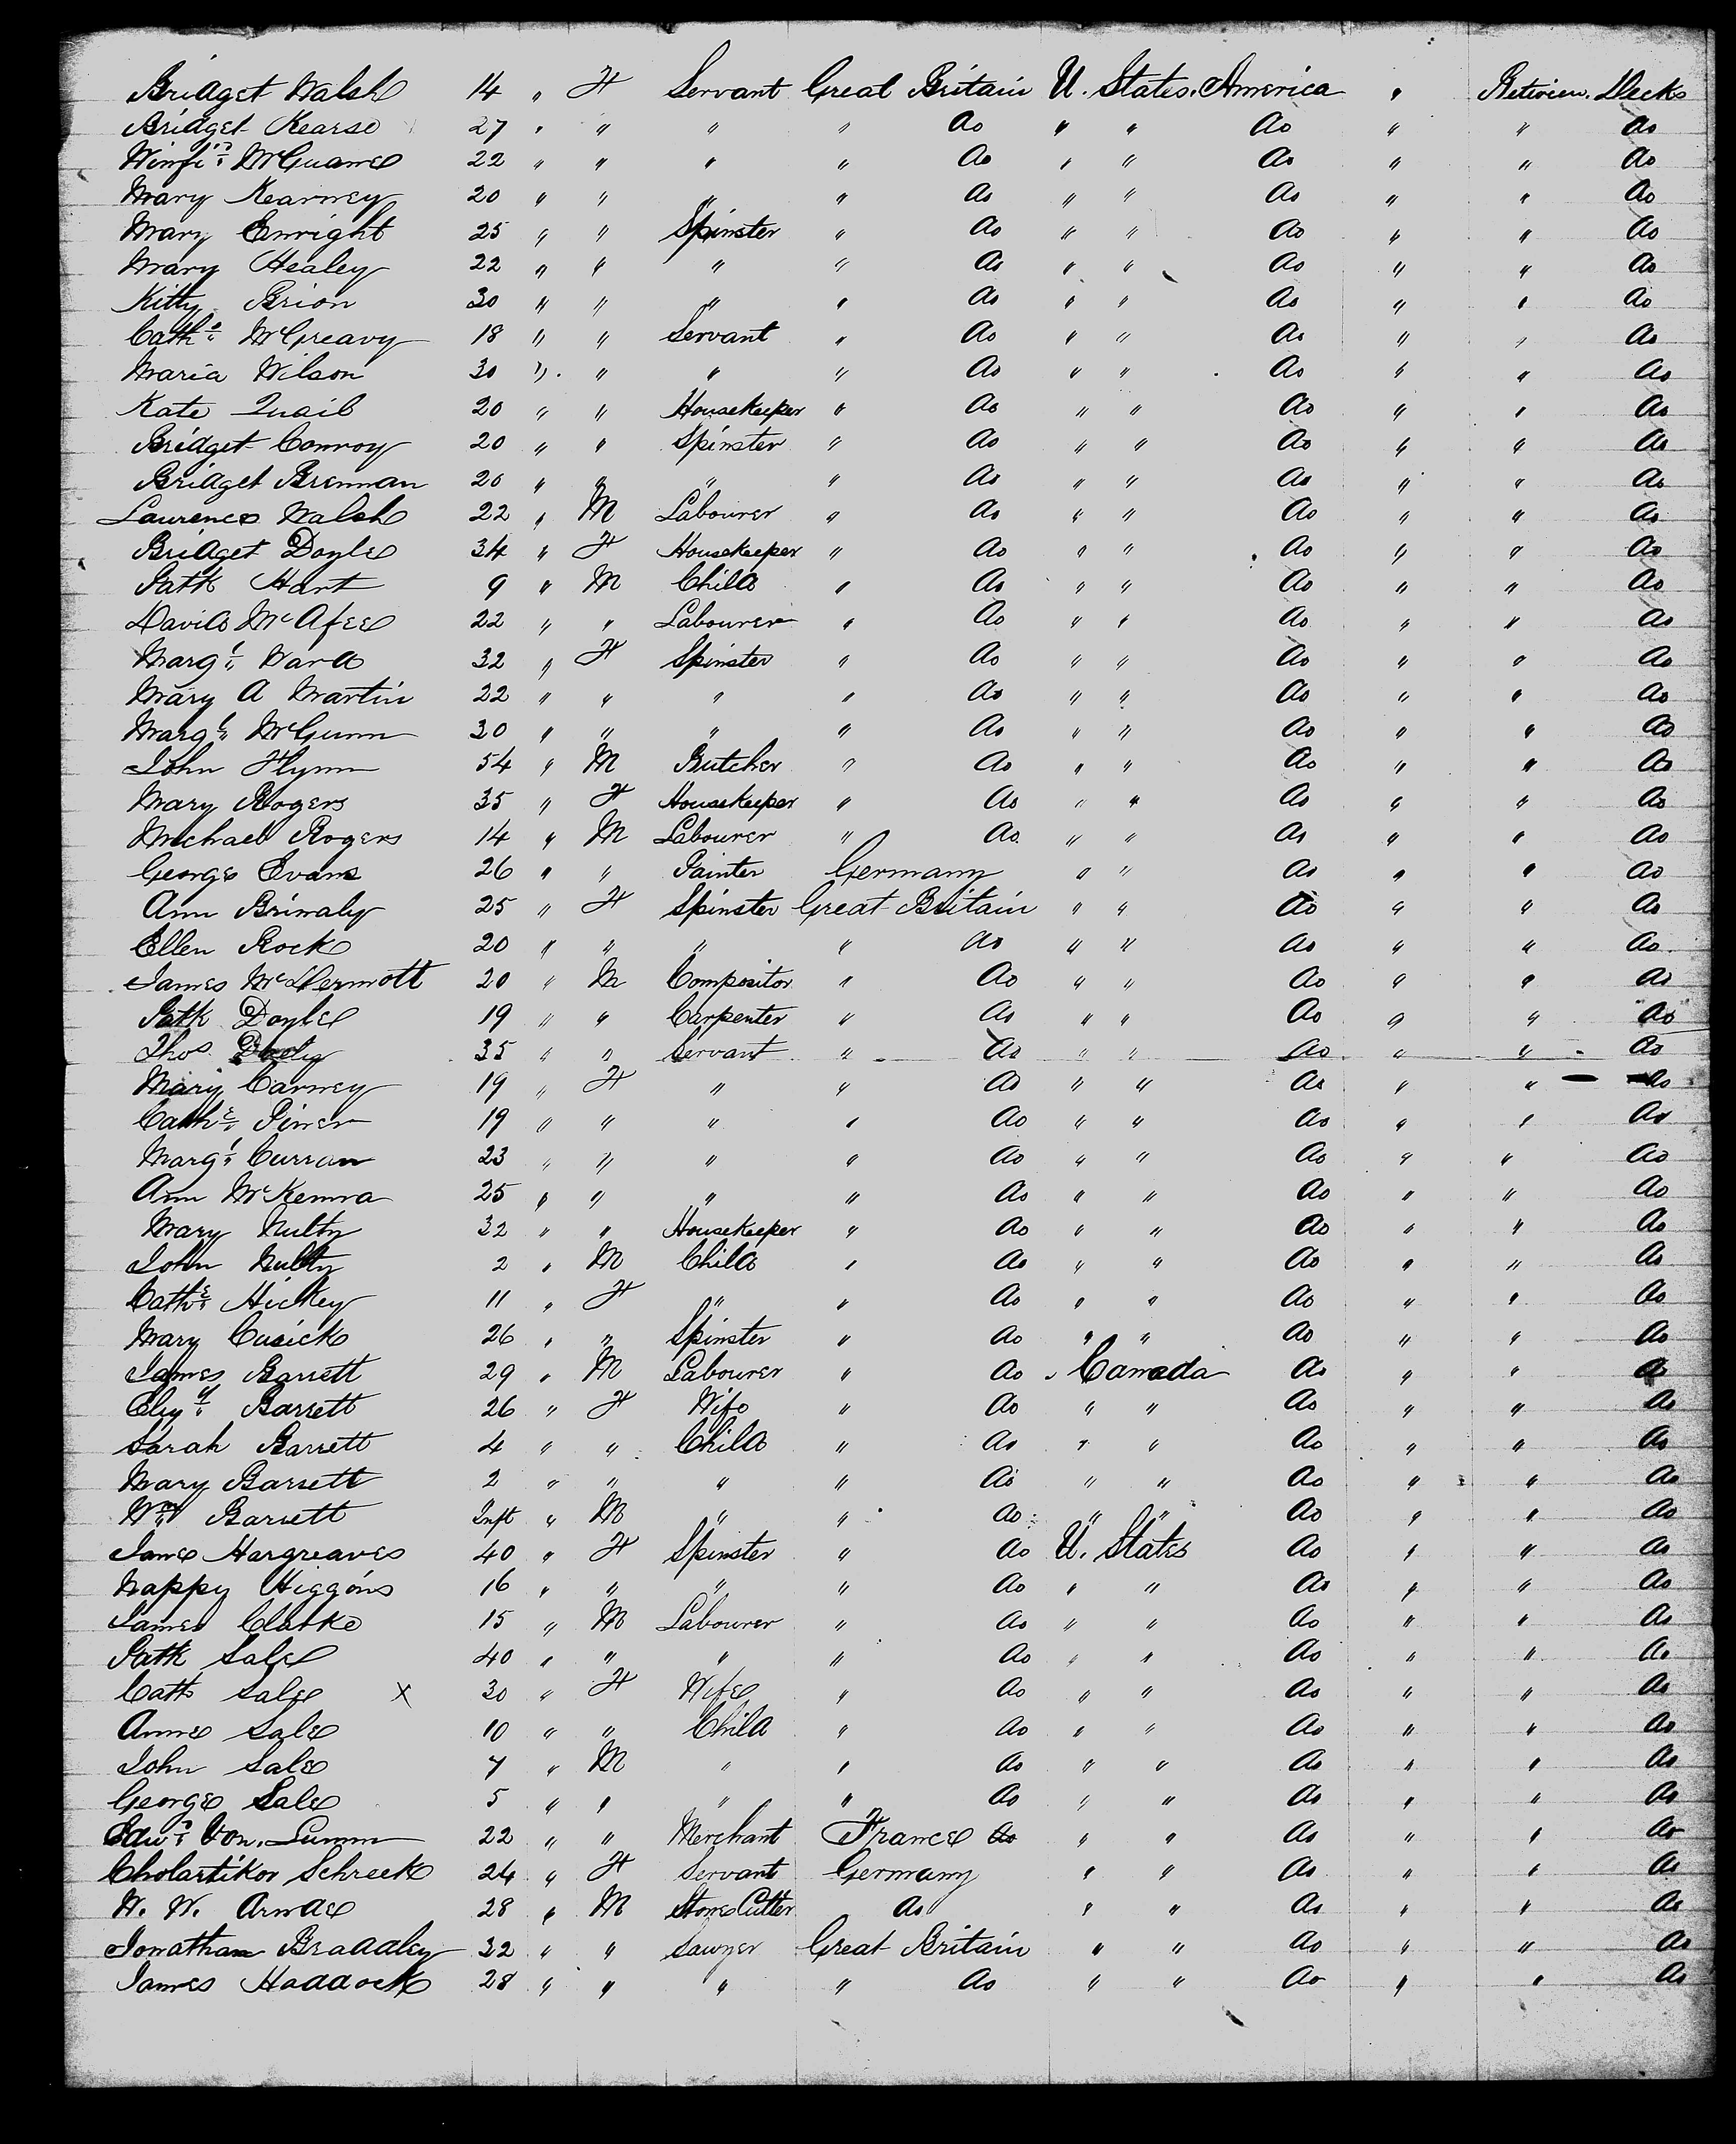 Bridget Walsh 14 " F Servant Great Britain U. States. America " Between Decks
Bridget Kearse 27 " " " " do " " do " " do
Winfd McGuane 22 " " " " do " " do " " do
Mary Kearney 20 " " " " do " " do " " do
Mary Enright 25 " " Spinster " do " " do " " do
Mary Healey 22 " " " " do " " do " " do
Kitty Brion 30 " " " " do " " do " " do
Cathe McGreavy 18 " " Servant " do " " do " " do
Maria Wilson 30 " " " " do " " do " " do
Kate Quail 20 " " Housekeeper " do " " do " " do
Bridget Conroy 20 " " Spinster " do " " do " " do
Bridget Brennan 20 " " " " do " " do " " do
Laurence Walsh 22 " M Labourer " do " " do " " do
Bridget Doyle 34 " F Housekeeper " do " " do " " do
Patk Hart 9 " M Child " do " " do " " do
David McAfee 22 " " Labourer " do " " do " " do
Margt Ward 32 " F Spinster " do " " do " " do
Mary A Martin 22 " " " " do " " do " " do
Margt McGunn 30 " " " " do " " do " " do
John Flynn 54 " M Butcher " do " " do " " do
Mary Rogers 35 " F Housekeeper " do " " do " " do
Michael Rogers 14 " M Labourer " do " " do " " do
George Evans 26 " " Painter Germany " " do " " do
Ann Brinaly 25 " F Spinster Great Britain " " do " " do
Ellen Rock 20 " " " " do " " do " " do
James McDermott 20 " M Compositor " do " " do " " do
Patk Doyle 19 " " Carpenter " do " " do " " do
Thos 35 " " Servant " do " " do " " do
Mary Carney 19 " F " " do " " do " " do
Cathe Piner 19 " " " " do " " do " " do
Margt Curran 23 " " " " do " " do " " do
Ann McKenna 25 " " " " do " " do " " do
Mary Nulty 32 " " Housekeeper " do " " do " " do
John Nulty 2 " M Child " do " " do " " do
Cathe Hickey 11 " F " " do " " do " " do
Mary Cusick 26 " " Spinster " do " " do " " do
James Barrett 29 " M Labourer " do " Canada do " " do
Elizth Barrett 26 " F Wife " do " " do " " do
Sarah Barrett 4 " " Child " do " " do " " do
Mary Barrett 2 " " " " do " " do " " do
Wm Barrett Inft " M " " do " " do " " do
Jane Hargreaves 40 " F Spinster " do U. States do " " do
Nappy Higgins 16 " " " " do " " do " " do
James Clarke 15 " M Labourer " do " " do " " do
Patk Sale 40 " " " " do " " do " " do
Cath Sale X 30 " F Wife " do " " do " " do
Anne Sale 10 " " Child " do " " do " " do
John Sale 7 " M " " do " " do " " do
George Sale 5 " " " " do " " do " " do
Edwd Von. Lumm 22 " " Merchant France do " " do " " do
Cholastikor Schreck 24 " F Servant Germany " " do " " do
W. W. Arnde 28 " M Stone Cutter do " " do " " do
Jonathan Braddley 32 " " Sawyer Great Britain " " do " " do
James Haddock 28 " " " " do " " do " " do